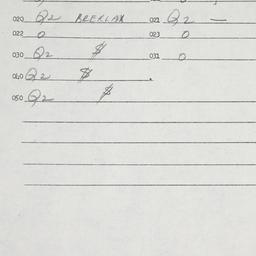 020 Q2 BREKLAX 021 Q2 —
022 0 023 0
030 Q2 $ 031 0
040 Q2 $
050 Q2 $